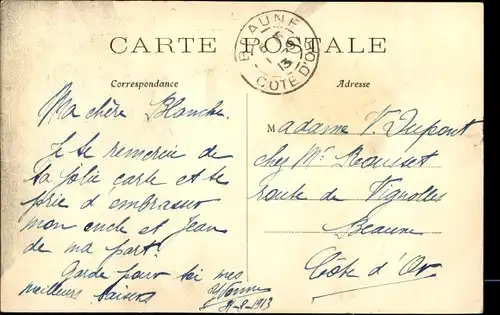 CARTE POSTALE
BEAUNE
CÔTE D'OR
13
Correspondance
Adresse
Ma chère Blanche.
Je te remercie de
ta jolie carte et te
prie d'embrasser
mon oncle et Jean
de ma part.
Garde pour toi mes
meilleurs baisers
Yvonne
Madame V. Dupont
chez Mr Rousset
route de Vignolles
Beaune
Côte d'Or